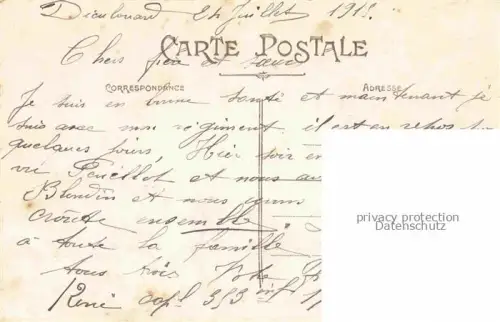 Dieulouard 24 Juillet 1915.
CARTE POSTALE
Chers frère et sœur
CORRESPONDANCE
ADRESSE
Je suis en bonne santé et maintenant je
suis avec mon régiment il est en repos
quelques jours, Hier soir
vu Feuillet et nous
Blondin et nous
croute ensemble
à toute la famille
tous trois
René cap^l 353 inf
privacy protection
Datenschutz